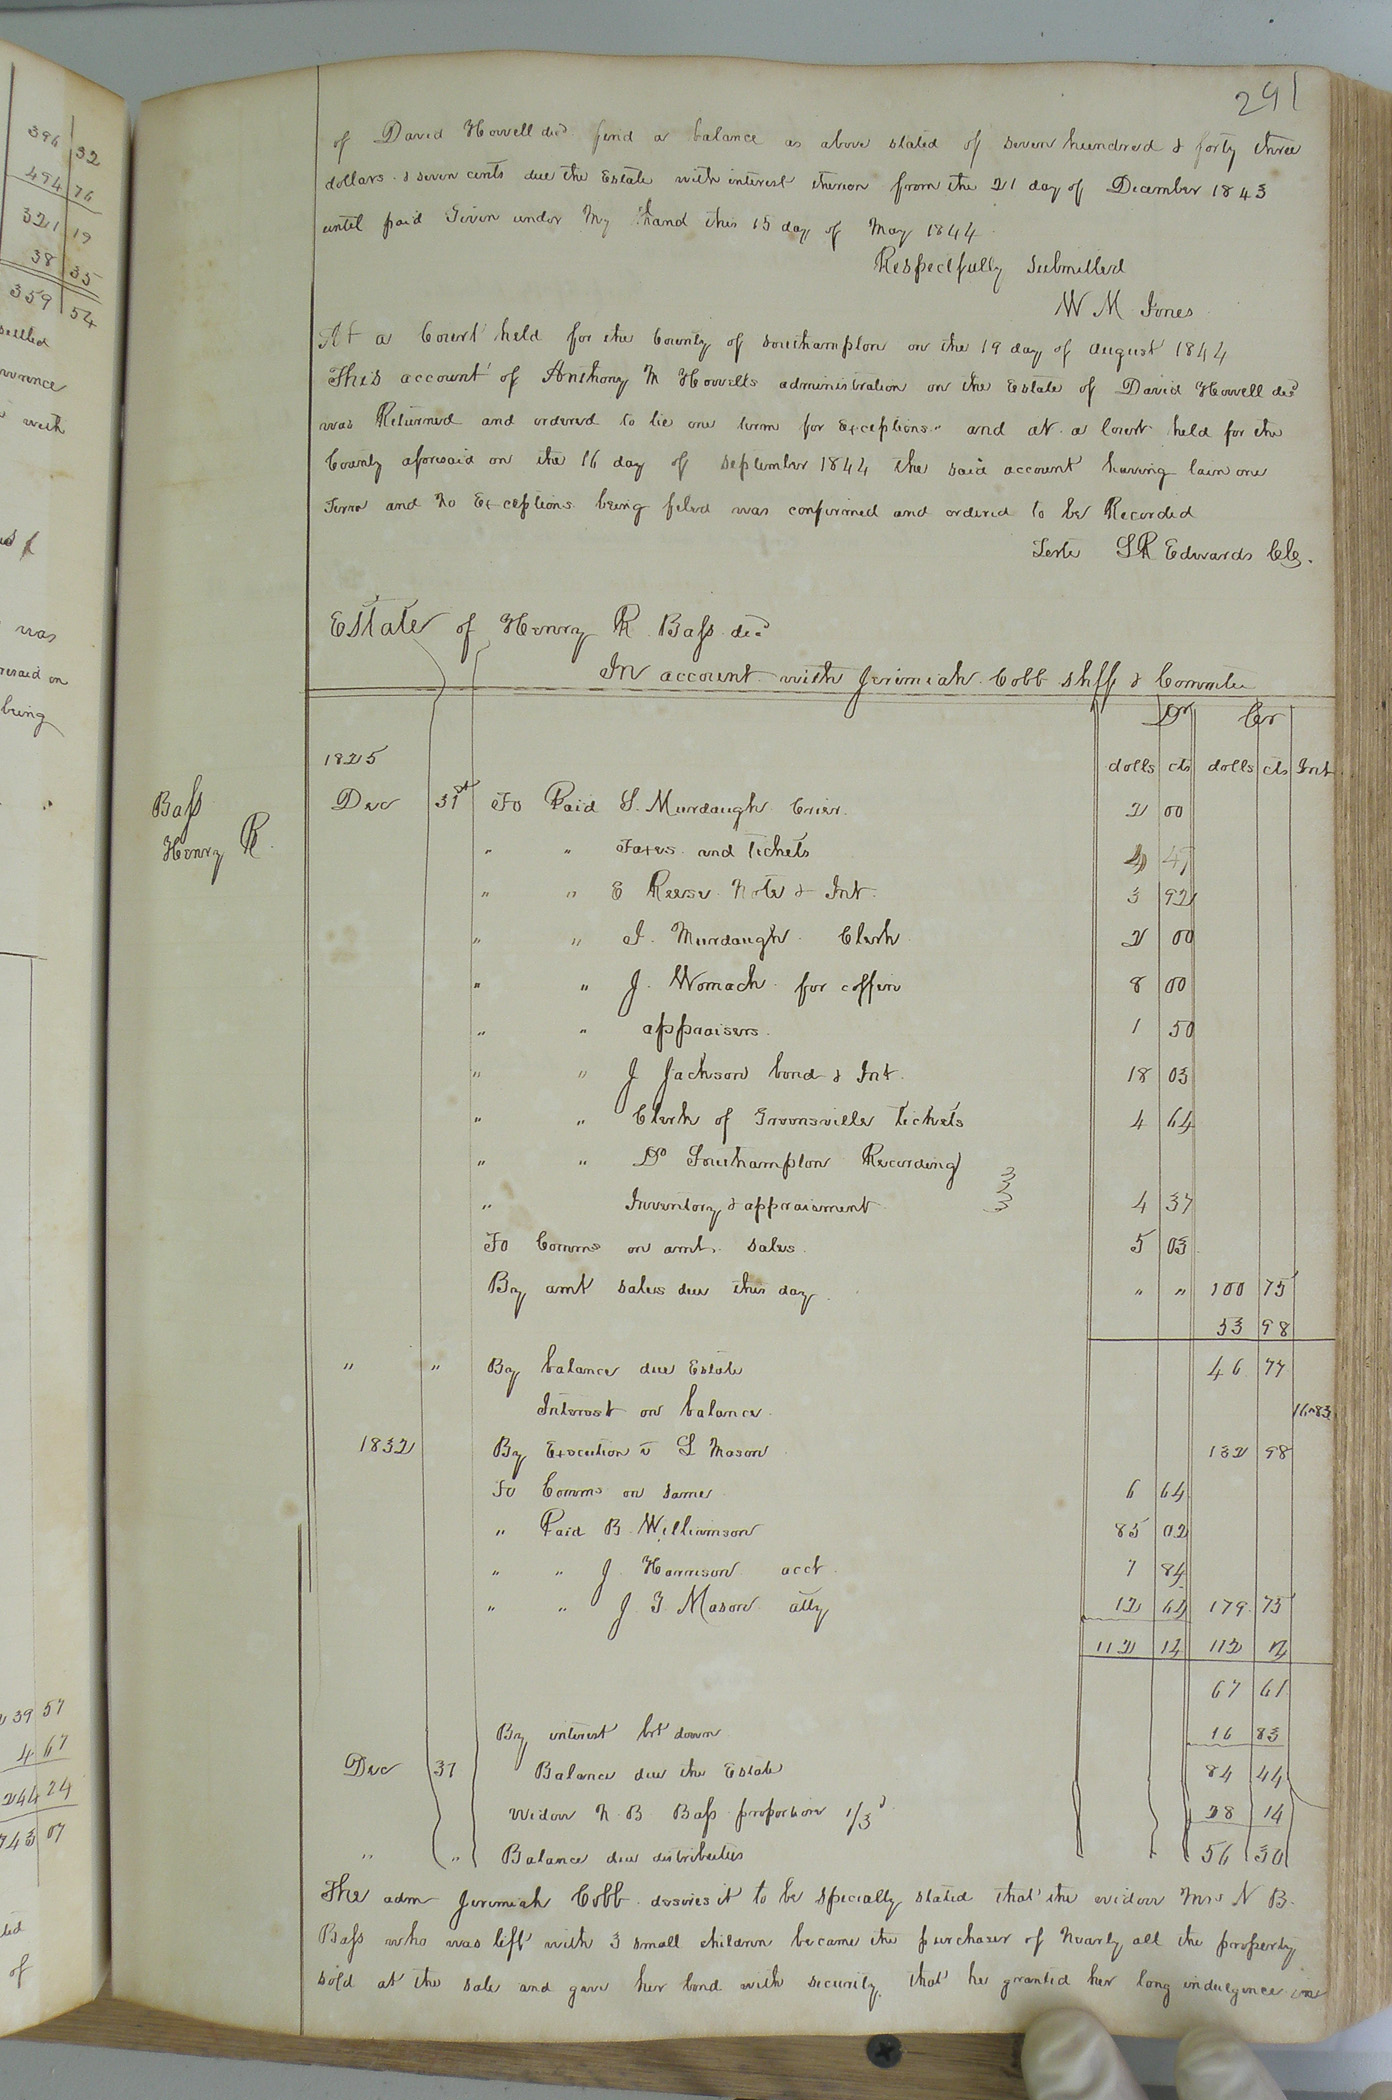 396 32
494 76
321 19
38 35
359 54
settled
with
was
being
39 57
4 67
244 24
743 07
of
291
of David Howell decd find a balance as above stated of seven hundred & forty three
dollars & seven cents due the Estate with interest thereon from the 21 day of December 1843
until paid Given under My hand this 15 day of May 1844
Respectfully Submitted
W M Jones
At a Court held for the County of Southampton on the 19 day of August 1844
This account of Anthony M Howells administration on the Estate of David Howell decd
was Returned and ordered to lie one term for Exceptions and at a Court held for the
County aforesaid on the 16 day of September 1844 the said account having lain one
Term and no Exceptions being filed was confirmed and ordered to be Recorded
Teste L R Edwards Clk.
Estate of Henry R. Bass decd
In account with Jeremiah Cobb Shff & Committee
Dr Cr
1825 dolls cts dolls cts Int
Bass
Henry R.
Dec 31st To Paid S. Murdaugh Crier. 2 00
" " Taxes and tickets 4 47
" " E Reese Note & Int. 3 92
" " J. Murdaugh Clerk 2 00
" " J. Womack for coffin 8 00
" " appraisers 1 50
" " J Jackson bond & Int. 18 03
" " Clerk of Greensville tickets 4 64
" " Do Southampton Recording
" Inventory & appraisment 4 37
To Comms on amt. sales. 5 03
By amt sales due this day " " 100 75
53 98
" " By balance due Estate 46 77
Interest on balance 16.83
1832 By Execution v L Mason 132 98
To Comms on same 6 64
" Paid B. Williamson 85 02
" " J Harrison acct 7 84
" " J Y Mason atty 12 64 179 75
112 14 112 14
67 61
By interest bt down 16 83
Dec 31 Balance due the Estate 84 44
Widow N. B Bass proportion 1/3d 28 14
" " Balance due distributees 56 30
The adm Jeremiah Cobb desires it to be specially stated that the widow Mrs N B.
Bass who was left with 3 small children became the purchaser of nearly all the property
sold at the sale and gave her bond with security. that he granted her long indulgence in